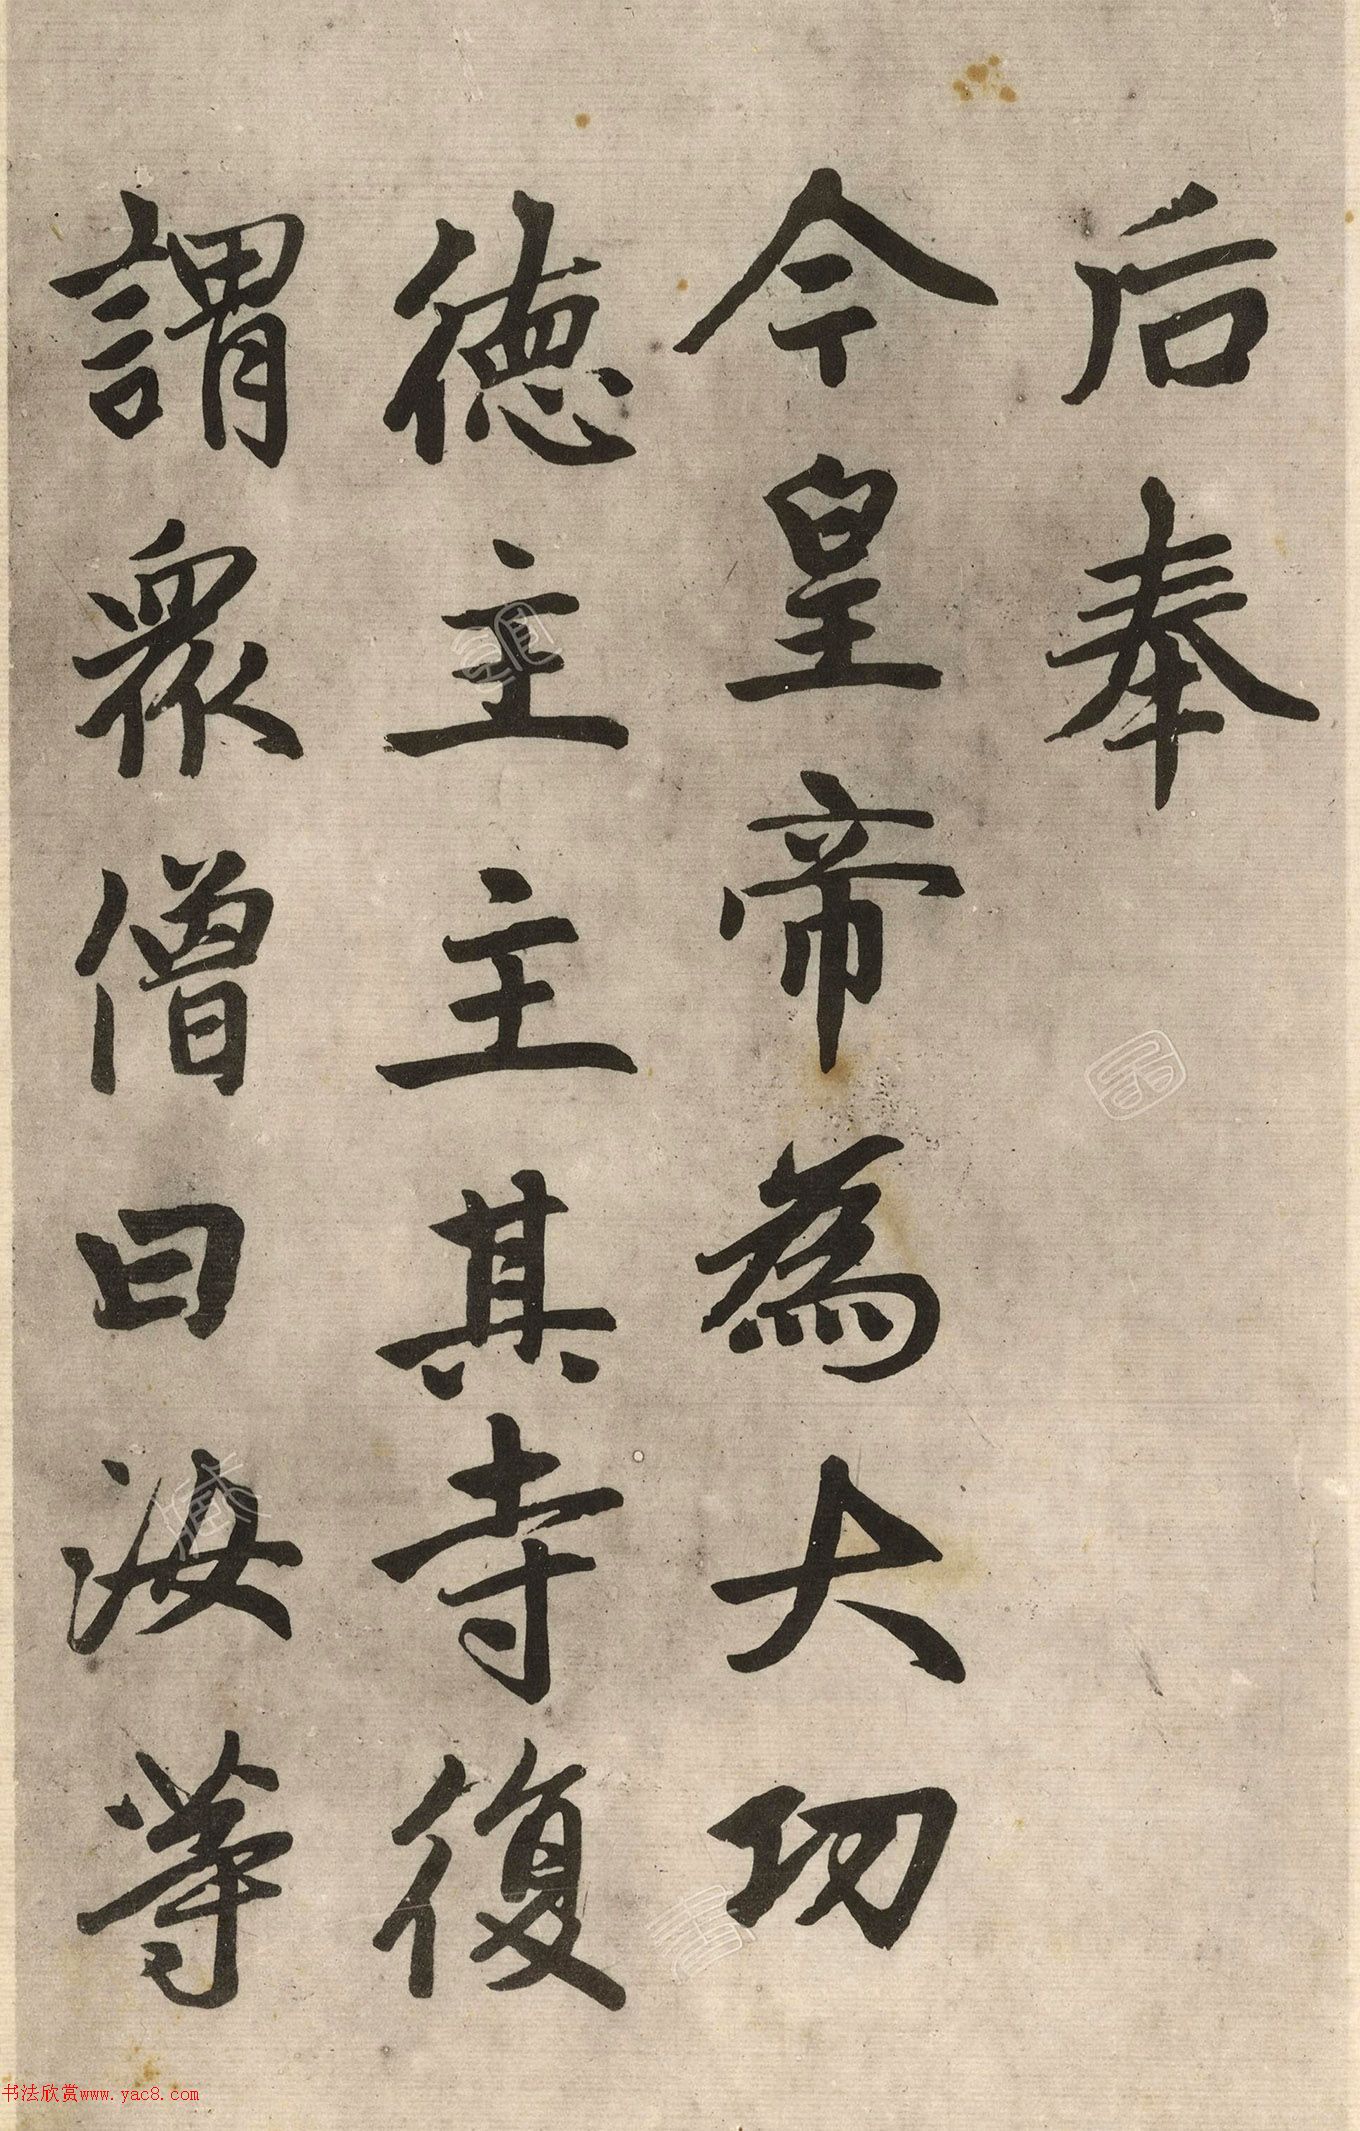 后奉
今皇帝為大功
德主主其寺復
謂衆僧曰汝等
书法欣赏www.yac8.com